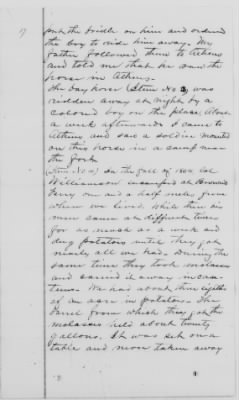 7
put the bridle on him and ordered
the boy to ride him away. My
father followed them to Athens
and told me that he saw the
horse in Athens.
The bay horse (Item No 3) was
ridden away at night by a
colored boy on the place. About
a week afterwards I came to
Athens and saw a soldier mounted
on this horse in a camp near
the fort.
(Item No 10) In the fall of 1864 Col
Williamson encamped at Brown's
Ferry one and a half miles from
where we lived. While there his
men came at different times
for as much as a week and
dug potatoes until they got
nearly all we had. During the
same time they took molasses
and carried it away in can-
teens. We had about three eighths
of an acre in potatoes. The
barrel from which they got the
molasses held about twenty
gallons. It was set on a
table and more taken away